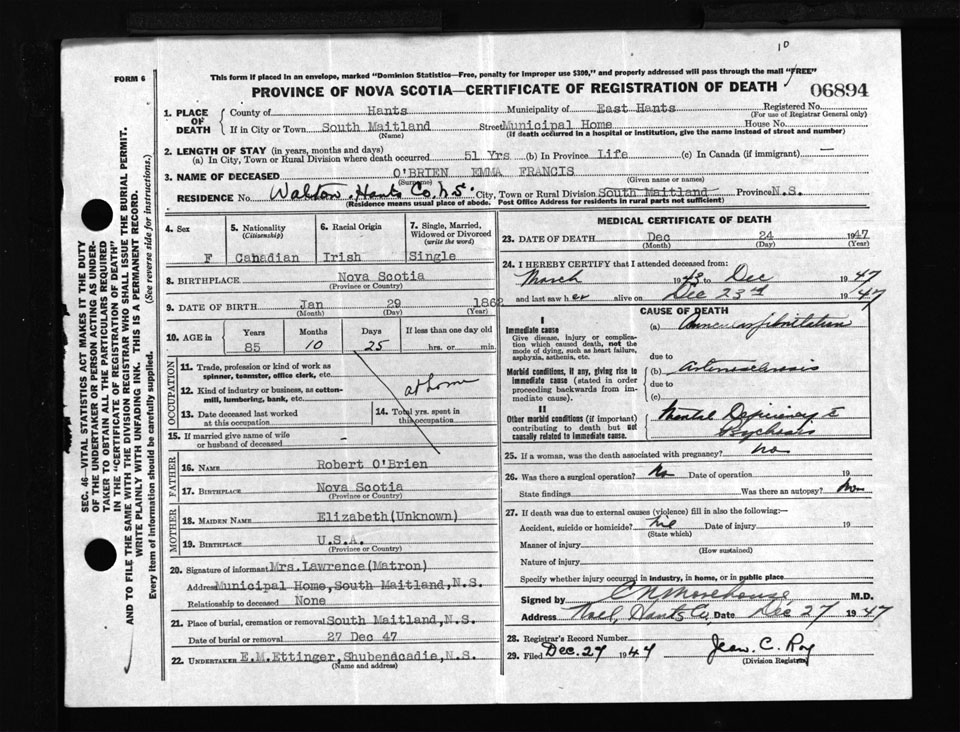 10
FORM 6
This form if placed in an envelope, marked "Dominion Statistics—Free, penalty for improper use $300," and properly addressed will pass through the mail "FREE"
PROVINCE OF NOVA SCOTIA—CERTIFICATE OF REGISTRATION OF DEATH 06894
1. PLACE OF DEATH { County of Hants Municipality of East Hants Registered No.
(For use of Registrar General only)
If in City or Town South Maitland Street Municipal Home House No.
(Name) (If death occurred in a hospital or institution, give the name instead of street and number)
2. LENGTH OF STAY (in years, months and days)
(a) In City, Town or Rural Division where death occurred 51 Yrs (b) In Province Life (c) In Canada (if immigrant) —
3. NAME OF DECEASED O'BRIEN EMMA FRANCIS
(Surname) (Given name or names)
RESIDENCE No. Walton, Hants Co, N.S. City, Town or Rural Division South Maitland Province N.S.
(Residence means usual place of abode. Post Office Address for residents in rural parts not sufficient)
4. Sex
F
5. Nationality
(Citizenship)
Canadian
6. Racial Origin
Irish
7. Single, Married,
Widowed or Divorced
(write the word)
Single
8. BIRTHPLACE Nova Scotia
(Province or Country)
9. DATE OF BIRTH Jan 29 1862
(Month) (Day) (Year)
10. AGE in { Years Months Days If less than one day old
85 10 25 hrs. or min.
OCCUPATION
11. Trade, profession or kind of work as
spinner, teamster, office clerk, etc.
12. Kind of industry or business, as cotton-
mill, lumbering, bank, etc.
at home
13. Date deceased last worked
at this occupation
14. Total yrs. spent in
this occupation
15. If married give name of wife
or husband of deceased
FATHER
16. NAME Robert O'Brien
17. BIRTHPLACE Nova Scotia
(Province or Country)
MOTHER
18. MAIDEN NAME Elizabeth(Unknown)
19. BIRTHPLACE U.S.A.
(Province or Country)
20. Signature of informant Mrs.Lawrence(Matron)
Address Municipal Home, South Maitland, N.S.
Relationship to deceased None
21. Place of burial, cremation or removal South Maitland, N.S.
Date of burial or removal 27 Dec 47
22. UNDERTAKER E.M.Ettinger, Shubendcadie, N.S.
(Name and address)
MEDICAL CERTIFICATE OF DEATH
23. DATE OF DEATH Dec 24 1947
(Month) (Day) (Year)
24. I HEREBY CERTIFY that I attended deceased from:
March 1943 to Dec 1947
and last saw her alive on Dec 23rd 1947
CAUSE OF DEATH
I
Immediate cause
Give disease, injury or complica-
tion which caused death, not the
mode of dying, such as heart failure,
asphyxia, asthenia, etc.
(a) fibrillation
due to
Morbid conditions, if any, giving rise to
immediate cause (stated in order
proceeding backwards from im-
mediate cause).
(b) Arteriosclerosis
due to
(c)
II
Other morbid conditions (if important)
contributing to death but not
causally related to immediate cause.
Mental Deficiency
Psychosis
25. If a woman, was the death associated with pregnancy? no
26. Was there a surgical operation? No Date of operation 19
State findings Was there an autopsy?
27. If death was due to external causes (violence) fill in also the following:—
Accident, suicide or homicide? nil Date of injury 19
(State which)
Manner of injury
(How sustained)
Nature of injury
Specify whether injury occurred in industry, in home, or in public place
Signed by C N Morehouse M.D.
Address Noel, Hants Co. Date Dec 27 1947
28. Registrar's Record Number
29. Filed Dec. 27 1947 Jean. C. Roy
(Division Registrar)
SEC. 46—VITAL STATISTICS ACT MAKES IT THE DUTY
OF THE UNDERTAKER OR PERSON ACTING AS UNDER-
TAKER TO OBTAIN ALL THE PARTICULARS REQUIRED
IN THE "CERTIFICATE OF REGISTRATION OF DEATH"
AND TO FILE THE SAME WITH THE DIVISION REGISTRAR WHO SHALL ISSUE THE BURIAL PERMIT.
WRITE PLAINLY WITH UNFADING INK. THIS IS A PERMANENT RECORD.
Every item of information should be carefully supplied. (See reverse side for instructions.)